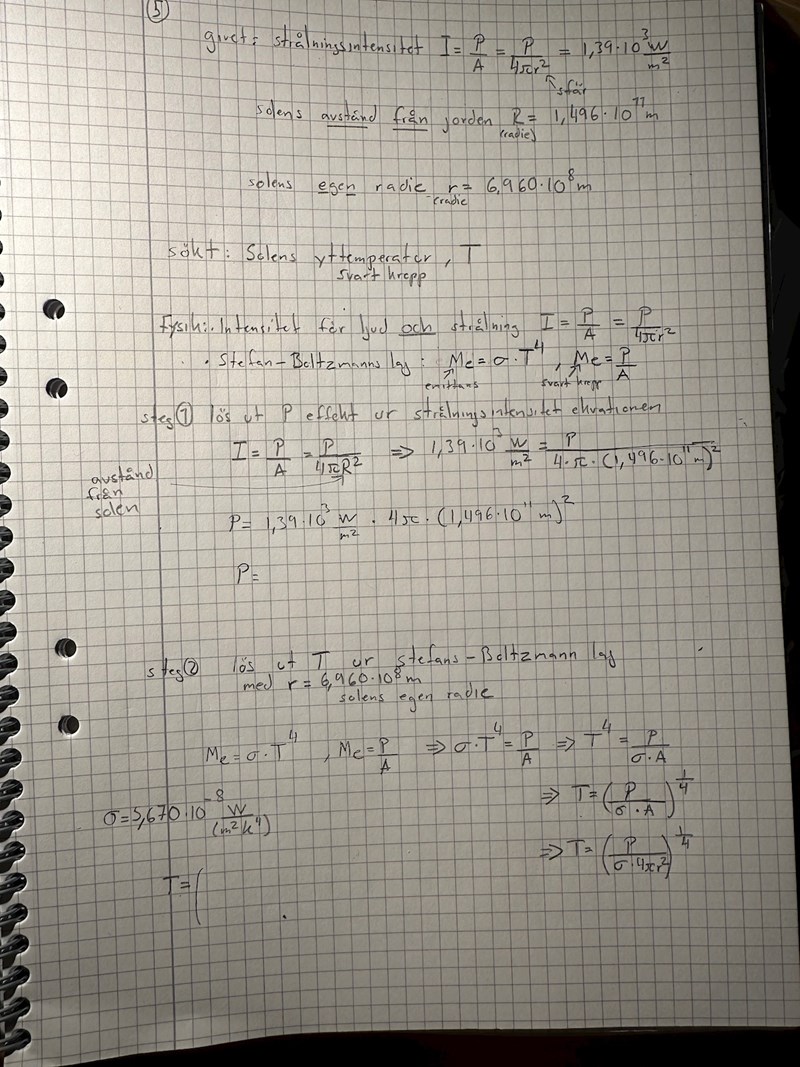 ⑤
givet: strålningsintensitet I = P/A = P/4πr² = 1,39·10³ W/m²
↖ sfär
solens avstånd från jorden R = 1,496·10¹¹ m
(radie)
solens egen radie r = 6,960·10⁸ m
radie
sökt: Solens yttemperatur, T
svart kropp
Fysik: · Intensitet för ljud och strålning I = P/A = P/4πr²
· Stefan-Boltzmanns lag: Me = σ·T⁴, Me = P/A
emittans svart kropp
steg ① lös ut P effekt ur strålningsintensitet ekvationen
I = P/A = P/4πR² ⇒ 1,39·10³ W/m² = P/4·π·(1,496·10¹¹ m)²
avstånd
från
solen
P = 1,39·10³ W/m² · 4π·(1,496·10¹¹ m)²
P =
steg ② lös ut T ur stefans-Boltzmann lag
med r = 6,960·10⁸ m
solens egen radie
Me = σ·T⁴, Me = P/A ⇒ σ·T⁴ = P/A ⇒ T⁴ = P/σ·A
⇒ T = (P/σ·A)^1/4
σ = 5,670·10⁻⁸ W/(m²k⁴)
⇒ T = (P/σ·4πr²)^1/4
T = (